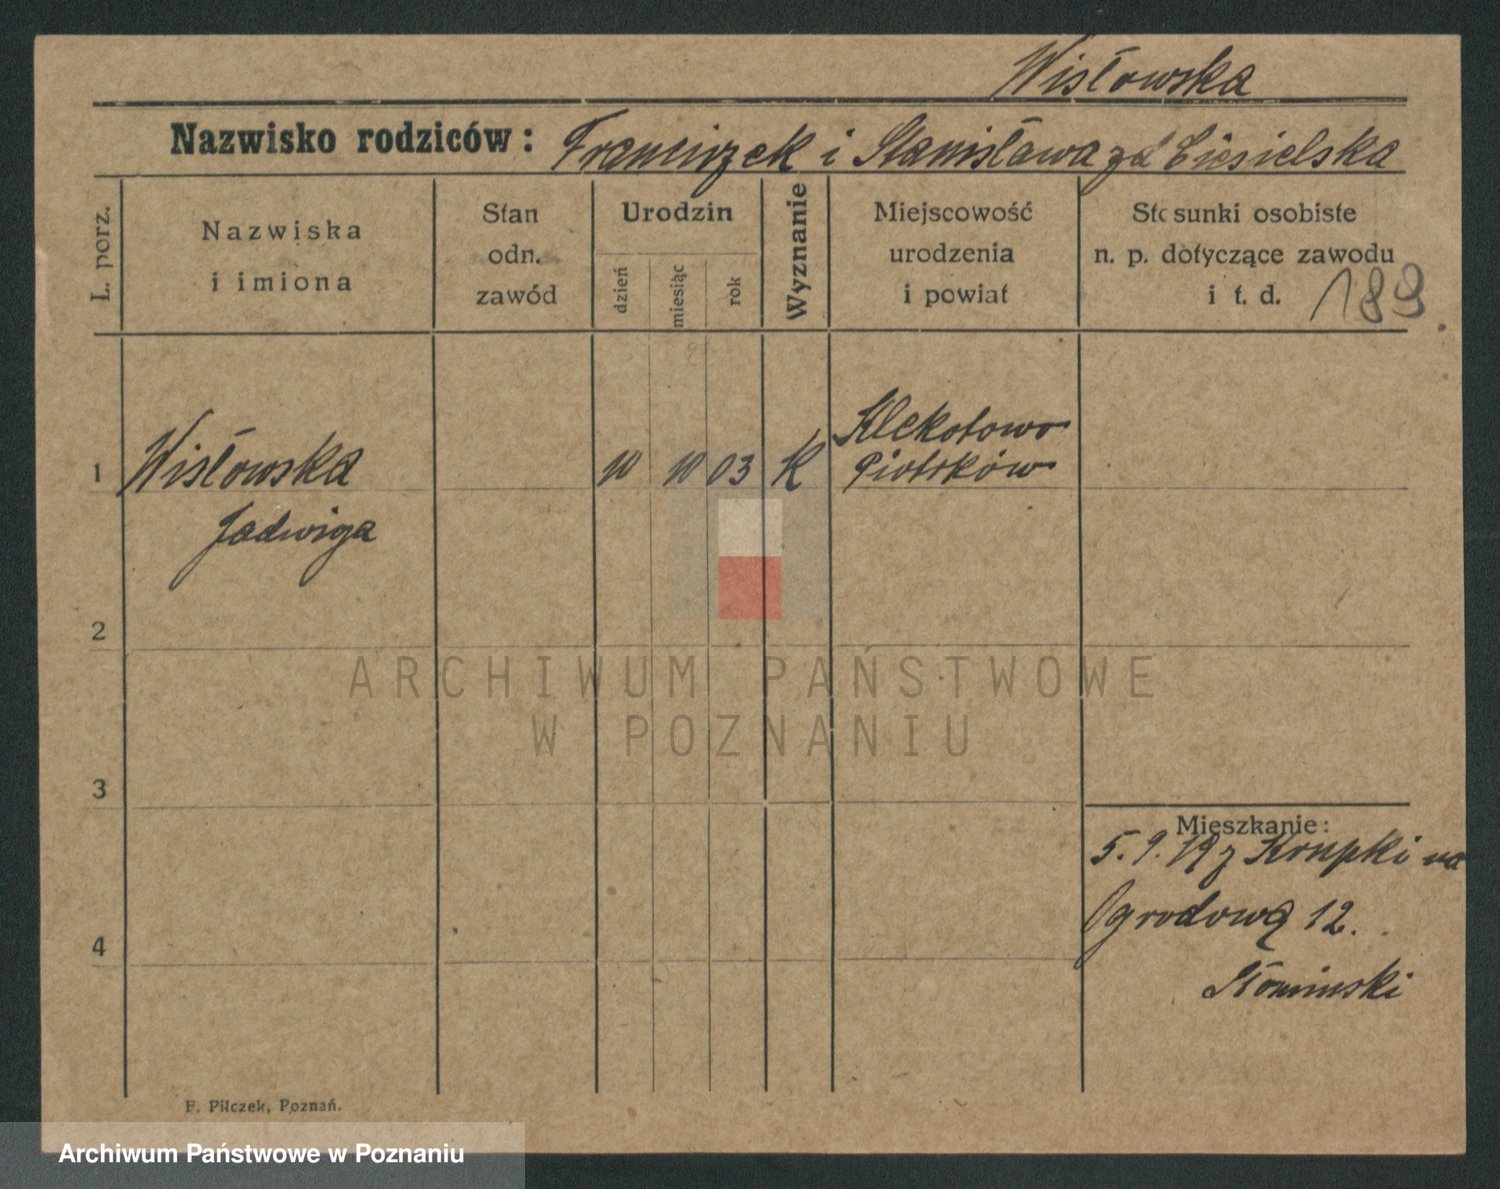 Wisłowska
Nazwisko rodziców: Franciszek i Stanisława zd Ciesielska
L. porz.
Nazwiska
i imiona
Stan
odn.
zawód
Urodzin
dzień
miesiąc
rok
Wyznanie
Miejscowość
urodzenia
i powiat
Stosunki osobiste
n. p. dotyczące zawodu
i t. d.
189.
1 Wisłowska 10 10 03 K Klekotowo
Piotrków
Jadwiga
2
3
4
Mieszkanie:
5.9.19 z Krupki na
Ogrodową 12.
Słominski
F. Pilczek, Poznań.
ARCHIWUM PAŃSTWOWE
W POZNANIU
Archiwum Państwowe w Poznaniu